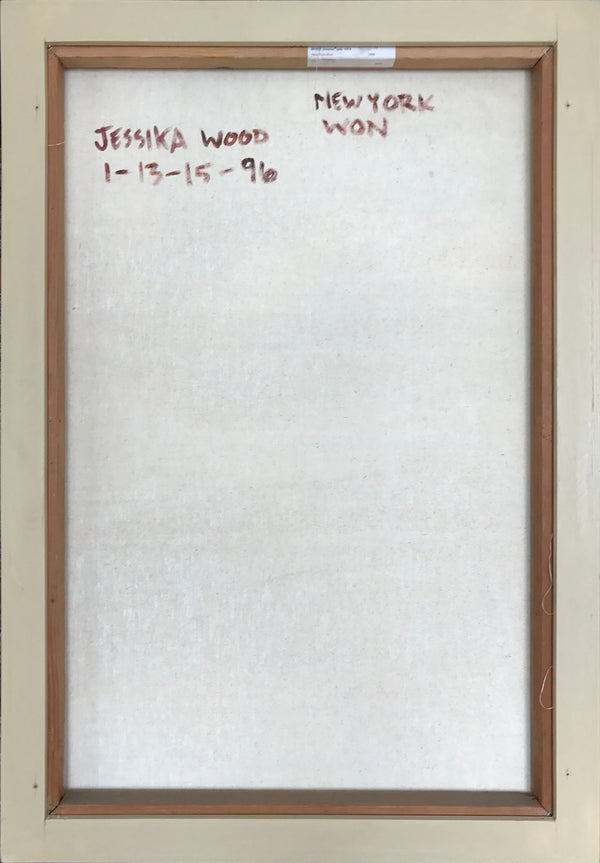 NEW YORK
WON
JESSIKA WOOD
1-13-15-96